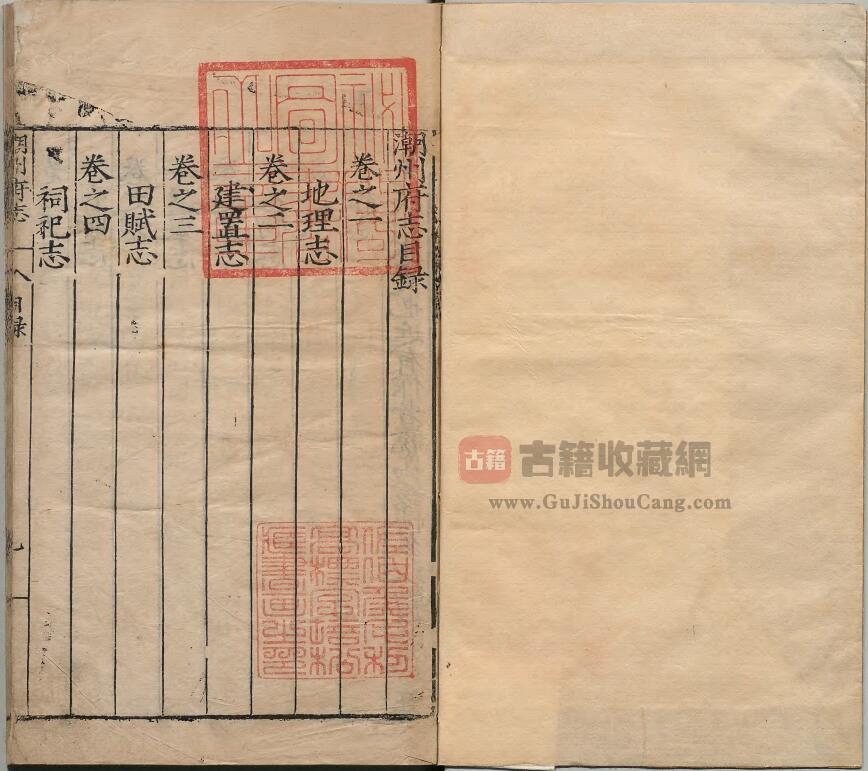 潮州府志目録
卷之一
地理志
卷之二
建置志
卷之三
田賦志
卷之四
祠祀志
潮州府志
目録
古籍
古籍收藏網
www.GuJiShouCang.com